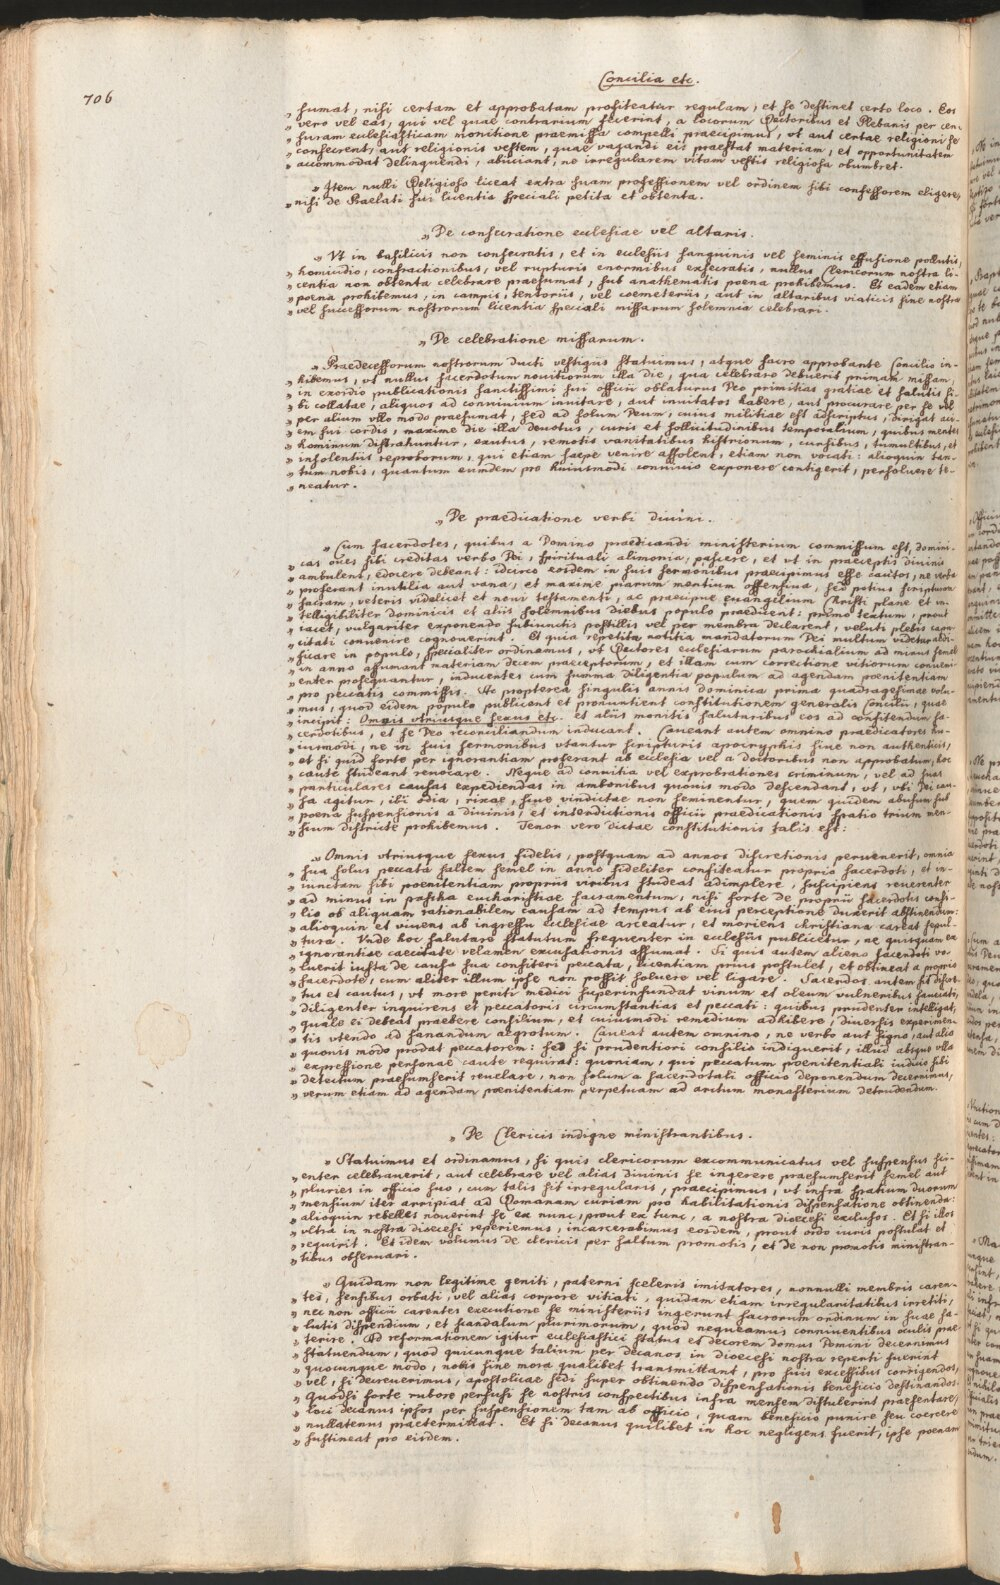 706
Concilia etc.
„ sumat, nisi certam et approbatam profiteatur regulam, et se destinet certo loco. Eos
„ vero vel eas, qui vel quae contrarium fecerint, a locorum Rectoribus et Plebanis per cen-
„ suram ecclesiasticam monitione praemissa compelli praecipimus, vt aut certae religioni se
„ consecrent, aut religionis vestem, quae vagandi eis praestat materiam, et opportunitatem
„ accommodat delinquendi, abiiciant, ne irregularem vitam vestis religiosa obumbret.
„ Item nulli Religioso liceat extra suam professionem vel ordinem sibi confessorem eligere,
„ nisi de Praelati sui licentia speciali petita et obtenta.
„ De consecratione ecclesiae vel altaris.
„ Vt in basilicis non consecratis, et in ecclesiis sanguinis vel seminis effusione pollutis,
„ homicidio, confractionibus, vel rupturis enormibus exsecratis, nullus Clericorum nostra li-
„ centia non obtenta celebrare praesumat, sub anathematis poena prohibemus. Et eadem etiam
„ poena prohibemus, in campis, tentoriis, vel coemeteriis, aut in altaribus viaticis sine nostra
„ vel successorum nostrorum licentia speciali missarum solemnia celebrari.
„ De celebratione missarum.
„ Praedecessorum nostrorum ducti vestigiis statuimus, atque sacro approbante Concilio in-
„ hibemus, vt nullus sacerdotum nouitiorum illa die, qua celebrare debuerit primam missam,
„ in exordio publicationis sanctissimi sui officii oblaturus Deo primitias gratiae et salutis si-
„ bi collatae, aliquos ad conuiuium inuitare, aut inuitatos habere, aut procurare per se vel
„ per alium vllo modo praesumat, sed ad solum Deum, cuius militiae est adscriptus, dirigat aci-
„ em sui cordis, maxime die illa deuotus, curis et sollicitudinibus temporalium, quibus mentes
„ hominum distrahuntur, exutus, remotis vanitatibus histrionum, cursibus, tumultibus, et
„ insolentiis reproborum, qui etiam saepe venire assolent, etiam non vocati: alioquin tan-
„ tum nobis, quantum eumdem pro huiusmodi conuiuio exponere contigerit, persoluere te-
„ neatur.
„ De praedicatione verbi diuini.
„ Cum sacerdotes, quibus a Domino praedicandi ministerium commissum est, domini-
„ cas oues sibi creditas verbo Dei, spirituali alimonia, pascere, et vt in praeceptis diuinis
„ ambulent, edocere debeant: idcirco eosdem in suis sermonibus praecipimus esse cautos, ne verba
„ proferant inutilia aut vana, et maxime piarum mentium offensiua, sed potius scripturam
„ sacram, veteris videlicet et noui testamenti, ac praecipue euangelium Christi plane et in-
„ telligibiliter dominicis et aliis solemnibus diebus populo praedicent: primo textum, prout
„ iacet, vulgariter exponendo subiunctis postillis vel per membra declarent, veluti plebis capa-
„ citati conuenire cognouerint. Et quia repetita notitia mandatorum Dei multum videtur aedi-
„ ficare in populo, specialiter ordinamus, vt Rectores ecclesiarum parochialium ad minus semel
„ in anno assumant materiam decem praeceptorum, et illam cum correctione vitiorum conueni-
„ enter prosequantur, inducentes cum summa diligentia populum ad agendam poenitentiam
„ pro peccatis commissis. Ac propterea singulis annis dominica prima quadragesimae volu-
„ mus, quod eidem populo publicent et pronuntient constitutionem generalis Concilii, quae
„ incipit: Omnis vtriusque sexus etc. et aliis monitis salutaribus eos ad confitendum sa-
„ cerdotibus, et se Deo reconciliandum inducant. Caueant autem omnino praedicatores hu-
„ iusmodi, ne in suis sermonibus vtantur scripturis apocryphis siue non authenticis,
„ et si quid forte per ignorantiam proferant ab ecclesia vel a doctoribus non approbatum, hoc
„ caute studeant reuocare. Neque ad conuitia vel exprobrationes criminum, vel ad suas
„ particulares causas expediendas in ambonibus quouis modo descendant, vt, vbi Dei cau-
„ sa agitur, ibi odia, rixae, siue vindictae non seminentur, quem quidem abusum sub
„ poena suspensionis a diuinis, et interdictionis officii praedicationis spatio trium men-
„ sium districte prohibemus. Tenor vero dictae constitutionis talis est:
„ Omnis vtriusque sexus fidelis, postquam ad annos discretionis peruenerit, omnia
„ sua solus peccata saltem semel in anno fideliter confiteatur proprio sacerdoti, et in-
„ iunctam sibi poenitentiam propriis viribus studeat adimplere, suscipiens reuerenter
„ ad minus in pascha eucharistiae sacramentum, nisi forte de proprii sacerdotis consi-
„ lio ob aliquam rationabilem causam ad tempus ab eius perceptione duxerit abstinendum:
„ alioquin et viuens ab ingressu ecclesiae arceatur, et moriens christiana careat sepul-
„ tura. Vnde hoc salutare statutum frequenter in ecclesiis publicetur, ne quisquam ex
„ ignorantiae caecitate velamen excusationis assumat. Si quis autem alieno sacerdoti vo-
„ luerit iusta de causa sua confiteri peccata, licentiam prius postulet, et obtineat a proprio
„ sacerdote, cum aliter illum ipse non possit soluere vel ligare. Sacerdos autem sit discre-
„ tus et cautus, vt more periti medici superinfundat vinum et oleum vulneribus sauciati,
„ diligenter inquirens et peccatoris circumstantias et peccati: quibus prudenter intelligat,
„ quale ei debeat praebere consilium, et cuiusmodi remedium adhibere, diuersis experimen-
„ tis vtendo ad sanandum aegrotum. Caueat autem omnino, ne verbo aut signo, aut alio
„ quouis modo prodat peccatorem: sed si prudentiori consilio indiguerit, illud absque vlla
„ expressione personae caute requirat: quoniam, qui peccatum poenitentiali iudicio sibi
„ detectum praesumserit reuelare, non solum a sacerdotali officio deponendum decernimus,
„ verum etiam ad agendam poenitentiam perpetuam ad arctum monasterium detrudendum.
„ De Clericis indigne ministrantibus.
„ Statuimus et ordinamus, si quis clericorum excommunicatus vel suspensus sci-
„ enter celebrauerit, aut celebrare vel alias diuinis se ingerere praesumserit semel aut
„ pluries in officio suo, cum talis sit irregularis, praecipimus, vt infra spatium duorum
„ mensium iter arripiat ad Romanam curiam pro habilitationis dispensatione obtinenda:
„ alioquin rebelles nouerint se ex nunc, prout ex tunc, a nostra dioecesi exclusos. Et si illos
„ vltra in nostra dioecesi reperiemus, incarcerabimus eosdem, prout ordo iuris postulat et
„ requirit. Et idem volumus de clericis per saltum promotis, et de non promotis ministran-
„ tibus obseruari.
„ Quidam non legitime geniti, paterni sceleris imitatores, nonnulli membris caren-
„ tes, sensibus orbati, vel alias corpore vitiati, quidam etiam irregularitatibus irretiti,
„ nec non officii carentes executione se ministeriis ingerunt sacrorum ordinum in suae sa-
„ lutis dispendium, et scandalum plurimorum, quod nequeamus conniuentibus oculis prae-
„ terire. Ad reformationem igitur ecclesiastici status et decorem domus Domini decernimus
„ statuendum, quod quicunque talium per decanos in dioecesi nostra reperti fuerint
„ quocunque modo, nobis sine mora qualibet transmittant, pro suis excessibus corrigendos,
„ vel, si decreuerimus, apostolicae sedi super obtinendo dispensationis beneficio destinandos.
„ Quodsi forte rubore perfusi se nostris conspectibus infra mensem distulerint praesentare,
„ loci decanus ipsos per suspensionem tam ab officio, quam beneficio punire seu coercere
„ nullatenus praetermittat. Et si decanus quilibet in hoc negligens fuerit, ipse poenam
„ sustineat pro eisdem.